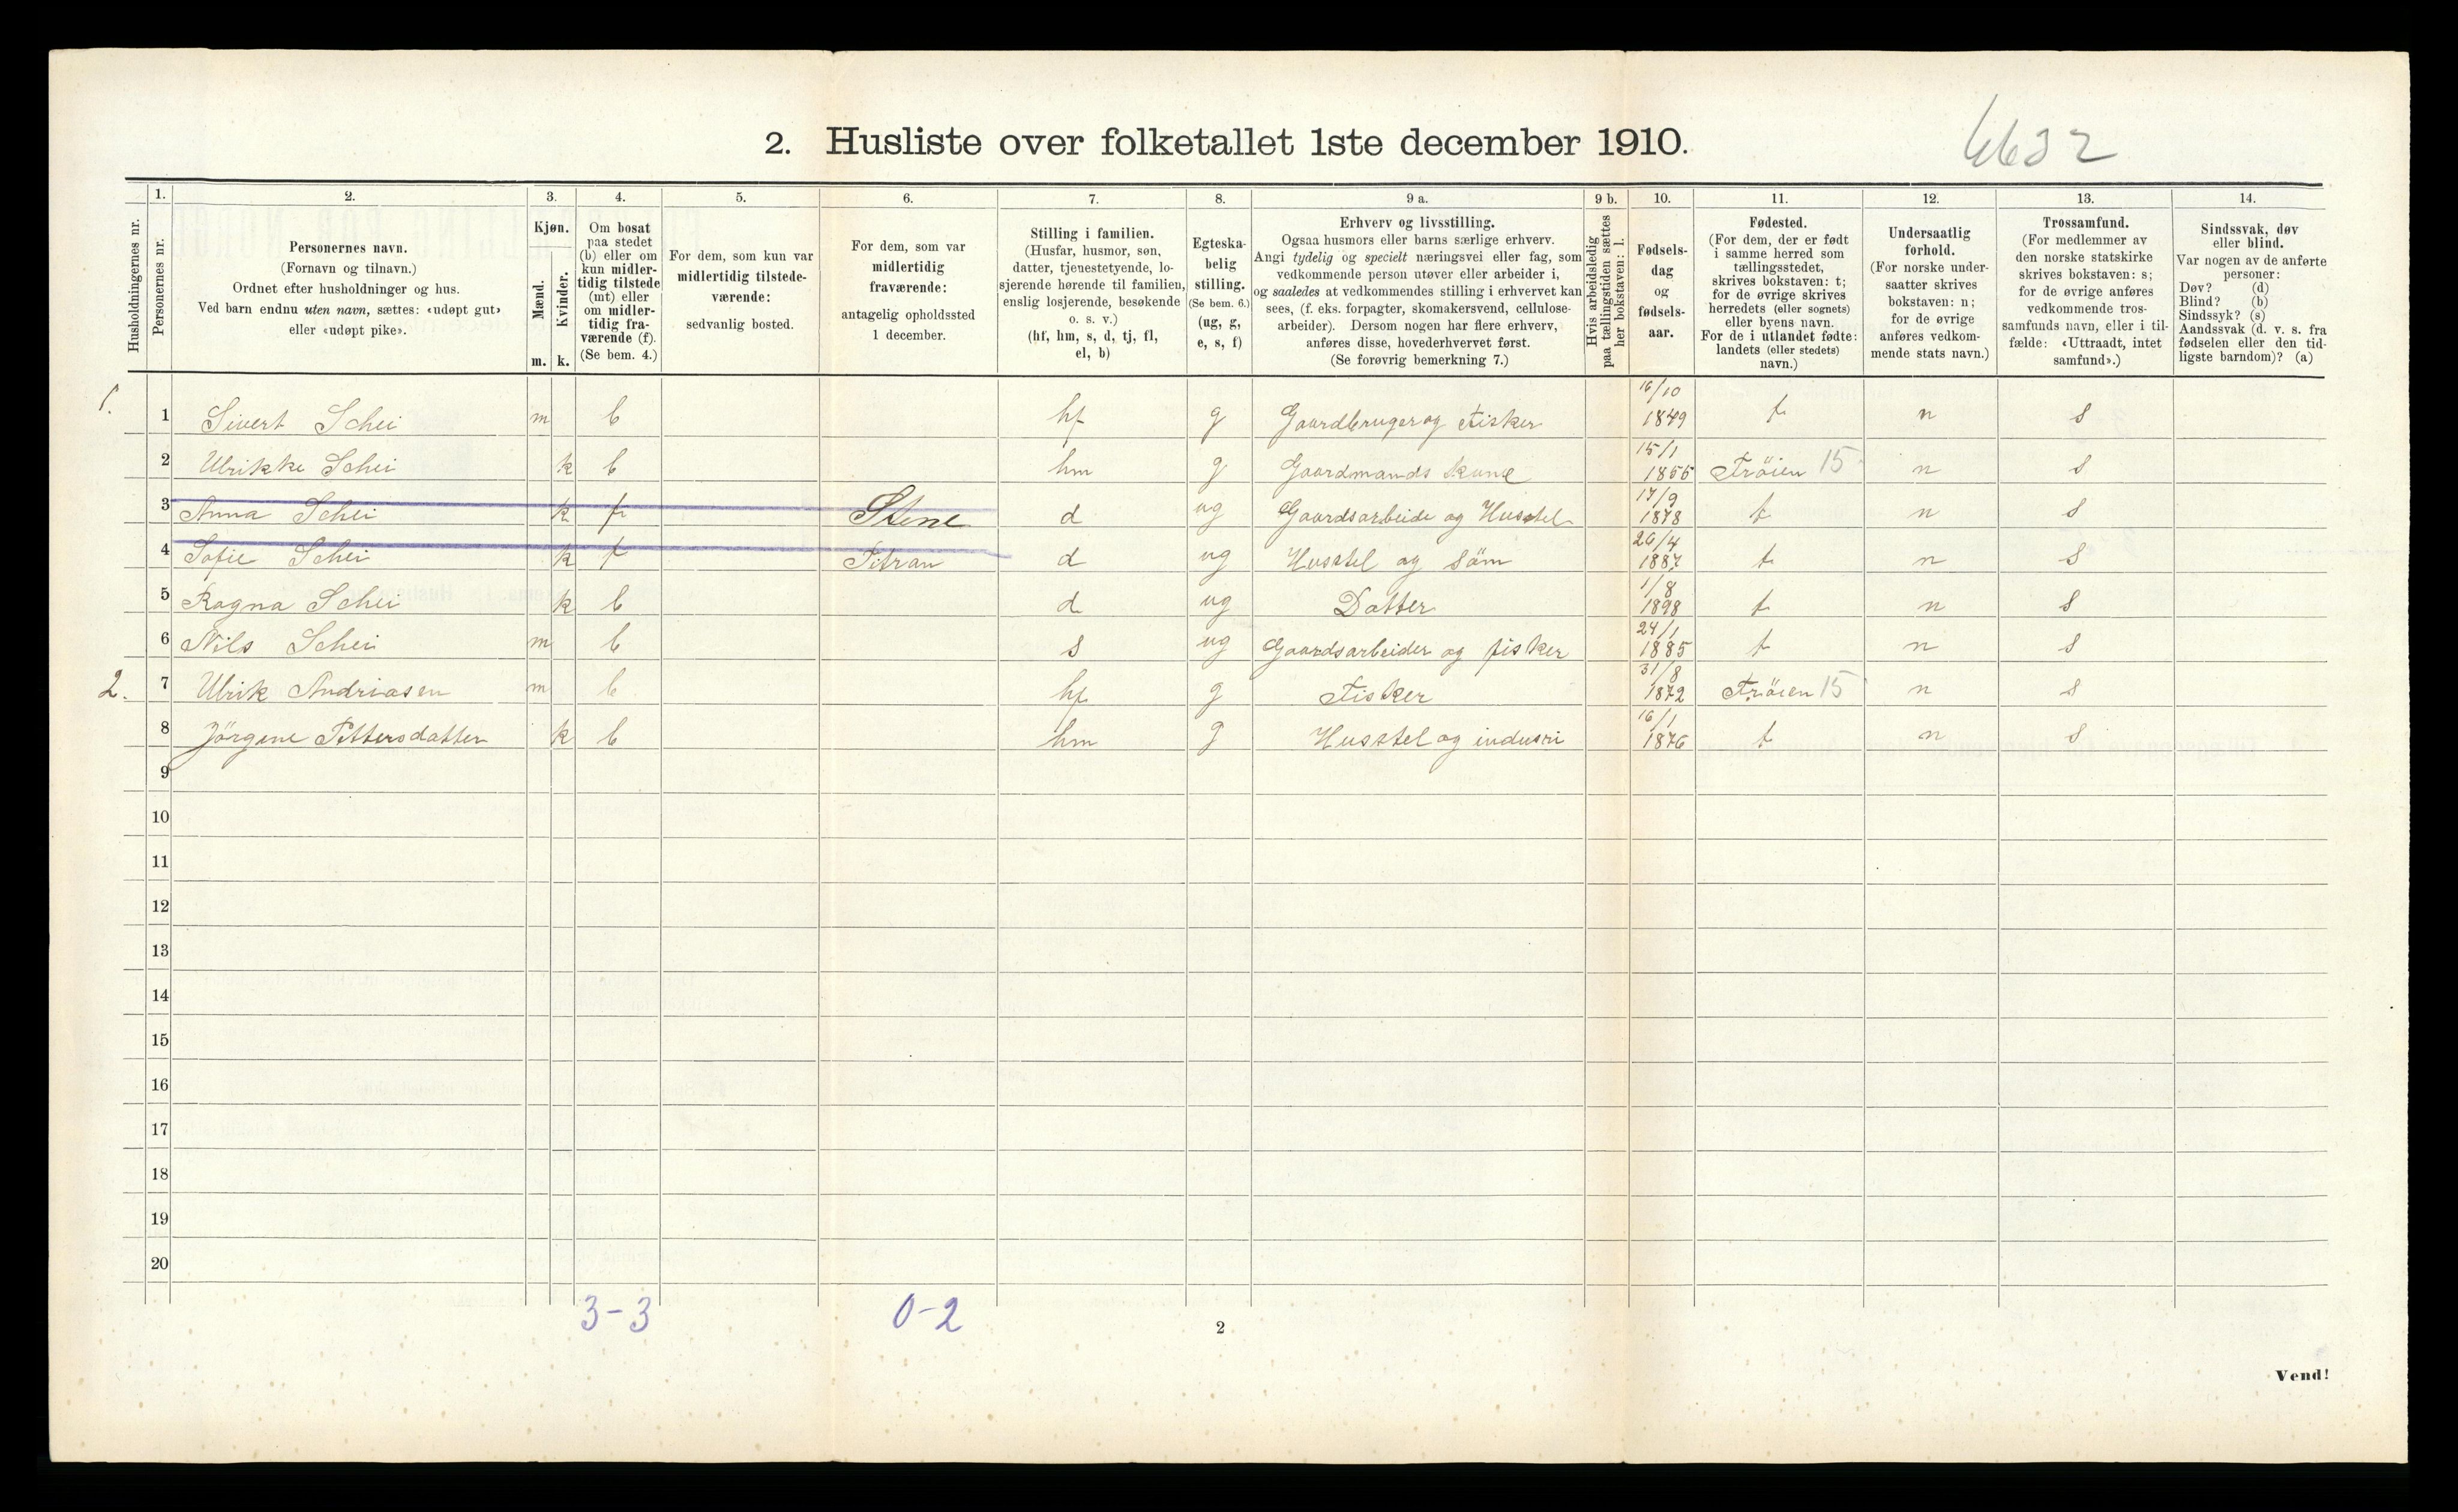 2. Husliste over folketallet 1ste december 1910.
6632
Husholdningernes nr.
1.
Personernes nr.
2.
Personernes navn.
(Fornavn og tilnavn.)
Ordnet efter husholdninger og hus.
Ved barn endnu uten navn, sættes: «udøpt gut»
eller «udøpt pike».
3.
Kjøn.
Mænd.
Kvinder.
m. k.
4.
Om bosat
paa stedet
(b) eller om
kun midler-
tidig tilstede
(mt) eller
om midler-
tidig fra-
værende (f).
(Se bem. 4.)
5.
For dem, som kun var
midlertidig tilstede-
værende:
sedvanlig bosted.
6.
For dem, som var
midlertidig
fraværende:
antagelig opholdssted
1 december.
7.
Stilling i familien.
(Husfar, husmor, søn,
datter, tjenestetyende, lo-
sjerende hørende til familien,
enslig losjerende, besøkende
o. s. v.)
(hf, hm, s, d, tj, fl,
el, b)
8.
Egteska-
belig
stilling.
(Se bem. 6.)
(ug, g,
e, s, f)
9 a.
Erhverv og livsstilling.
Ogsaa husmors eller barns særlige erhverv.
Angi tydelig og specielt næringsvei eller fag, som
vedkommende person utøver eller arbeider i,
og saaledes at vedkommendes stilling i erhvervet kan
sees, (f. eks. forpagter, skomakersvend, cellulose-
arbeider). Dersom nogen har flere erhverv,
anføres disse, hovederhvervet først.
(Se forøvrig bemerkning 7.)
9 b.
Hvis arbeidsledig
paa tællingstiden sættes
her bokstaven: l.
10.
Fødsels-
dag
og
fødsels-
aar.
11.
Fødested.
(For dem, der er født
i samme herred som
tællingsstedet,
skrives bokstaven: t;
for de øvrige skrives
herredets (eller sognets)
eller byens navn.
For de i utlandet fødte:
landets (eller stedets)
navn.)
12.
Undersaatlig
forhold.
(For norske under-
saatter skrives
bokstaven: n;
for de øvrige
anføres vedkom-
mende stats navn.)
13.
Trossamfund.
(For medlemmer av
den norske statskirke
skrives bokstaven: s;
for de øvrige anføres
vedkommende tros-
samfunds navn, eller i til-
fælde: «Uttraadt, intet
samfund».)
14.
Sindssvak, døv
eller blind.
Var nogen av de anførte
personer:
Døv? (d)
Blind? (b)
Sindssyk? (s)
Aandssvak (d. v. s. fra
fødselen eller den tid-
ligste barndom)? (a)
1. 1 Sivert Schei m b hf g Gaardbruger og Fisker 16/10 1849 t n s
2 Ulrikke Schei k b hm g Gaardmands kone 15/1 1855 Frøien 15 n s
3 Anna Schei k f Stene d ug Gaardsarbeide og Husstel 17/9 1878 t n s
4 Sofie Schei k f Titran d ug Husstel og Söm 26/4 1887 t n s
5 Ragna Schei k b d ug Datter 1/8 1898 t n s
6 Nils Schei m b s ug Gaardsarbeider og fisker 24/1 1885 t n s
2. 7 Ulrik Andriasen m b hf g Fisker 31/8 1872 Frøien 15 n s
8 Jörgine Pettersdatter k b hm g Husstel og indusri 16/1 1876 t n s
9
10
11
12
13
14
15
16
17
18
19
20
3-3 0-2
2
Vend!